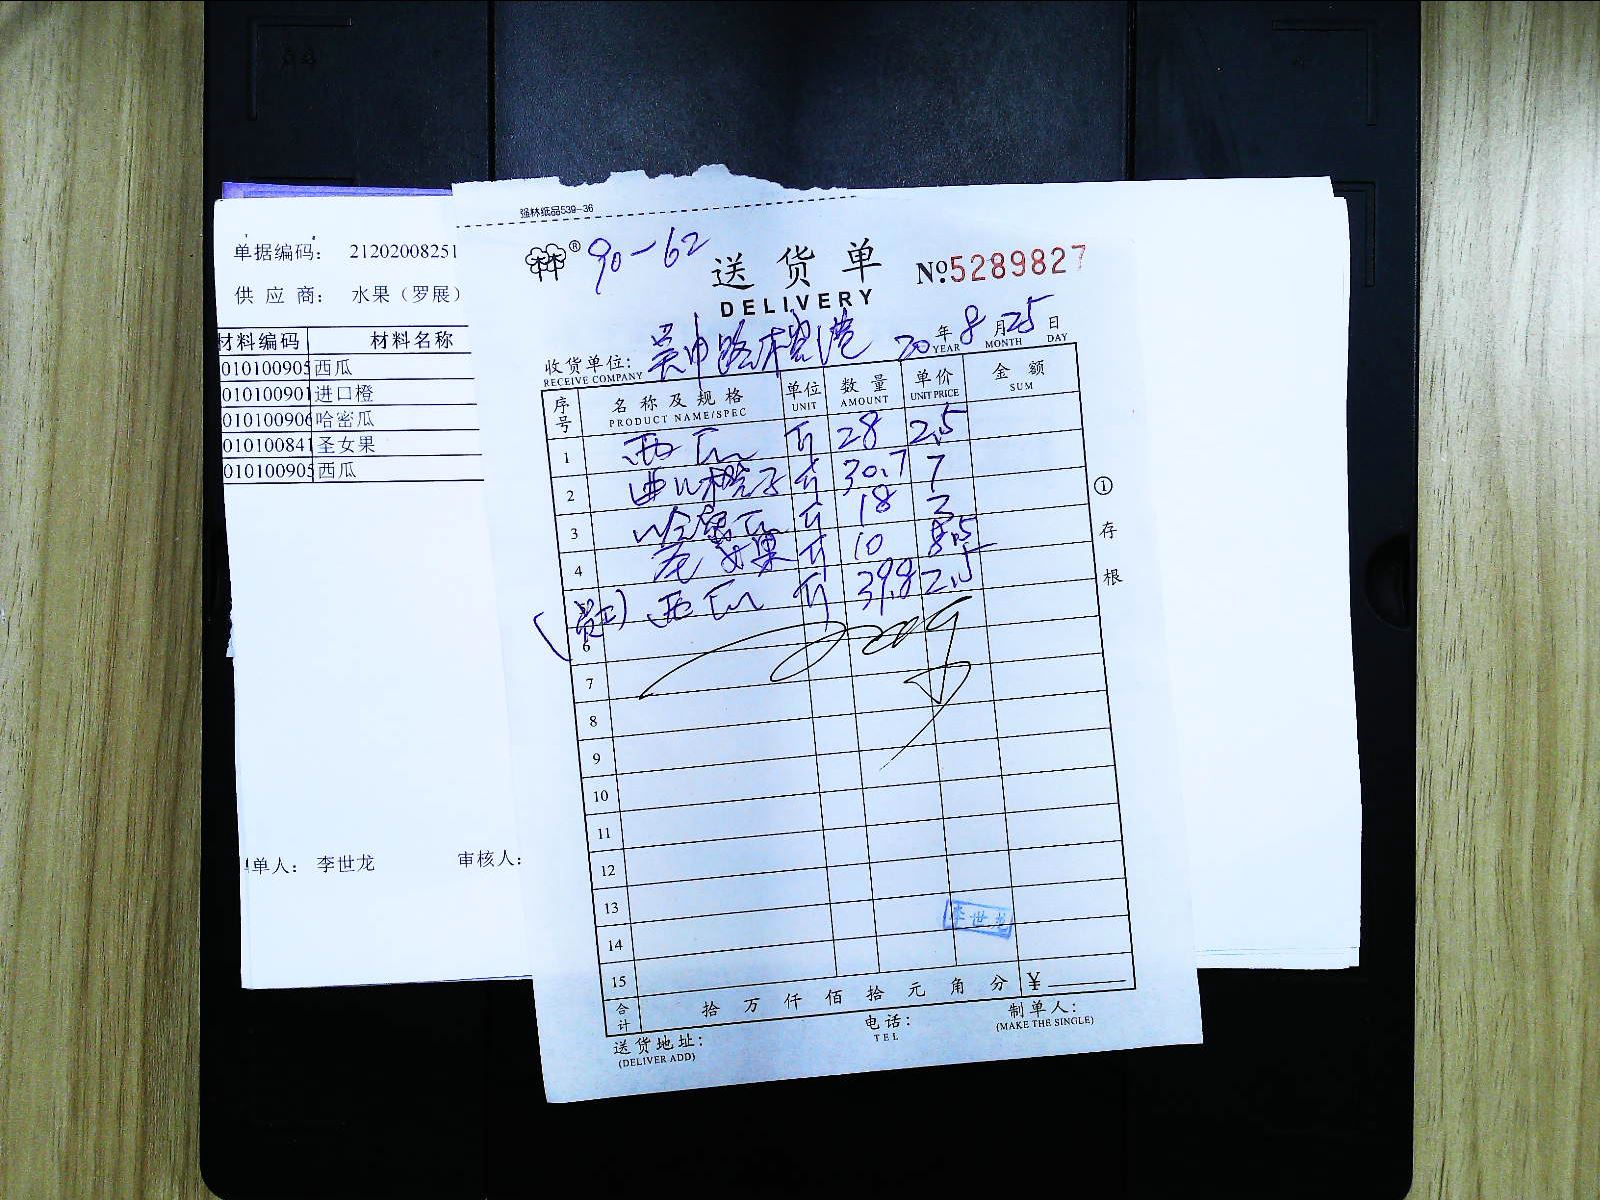 强林纸品539-36
® 90-62
送货单 №5289827
DELIVERY
收货单位: 吴中路 20年8月25日
RECEIVE COMPANY YEAR MONTH DAY
序号 名称及规格 单位 数量 单价 金额
PRODUCT NAME/SPEC UNIT AMOUNT UNIT PRICE SUM
1 西瓜 斤 28 2.5
2 橙子 斤 30.7 7
3 哈密瓜 斤 18 3
4 圣女果 斤 10 8.5
(员工) 西瓜 斤 39.8 2.5
6
7
8
9
10
11
12
13
李世龙
14
15
合计 拾万仟佰拾元角分 ¥
送货地址: 电话: 制单人:
(DELIVER ADD) TEL (MAKE THE SINGLE)
①存根
单据编码: 21202008251
供应商: 水果(罗展)
材料编码 材料名称
010100905 西瓜
010100901 进口橙
010100906 哈密瓜
010100841 圣女果
010100905 西瓜
单人: 李世龙 审核人: